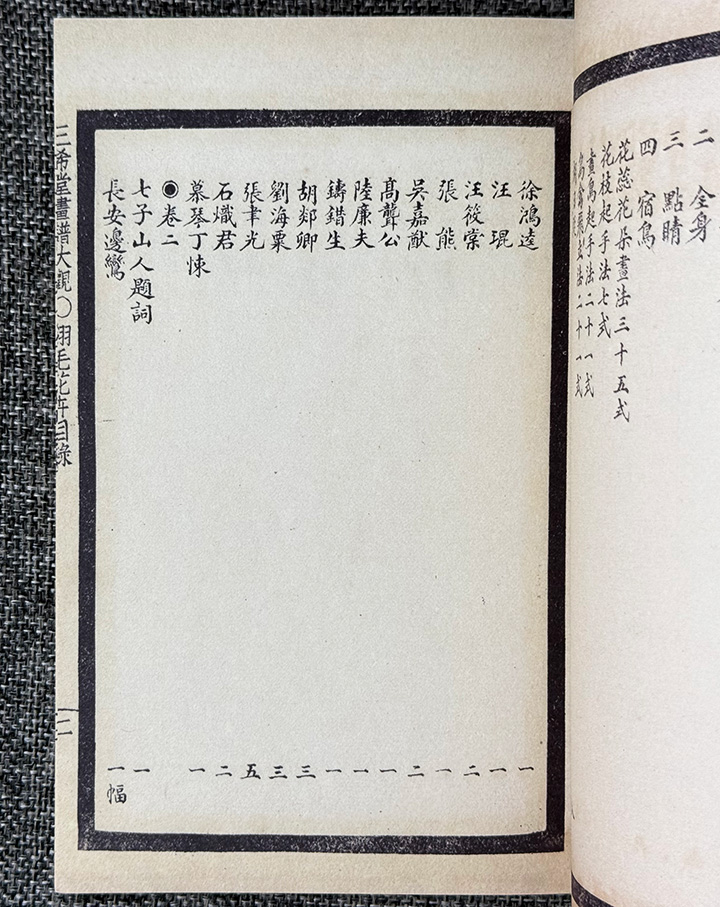 二 全身
三 點睛
四 宿鳥
花蕊花朵畫法三十五式
花枝起手法七式
畫鳥起手法二十一式
法二十一式
徐鴻逵 一
汪琨 一
汪筱棠 二
張熊 一
吳嘉猷 二
高聾公 一
陸廉夫 一
鑄錯生 一
胡郯卿 三
劉海粟 三
張聿光 五
石熾君 二
慕琴丁悚 一
◉卷二
七子山人題詞 一
長安邊鸞 一幅
三希堂畫譜大觀〇翎毛花卉目錄 二